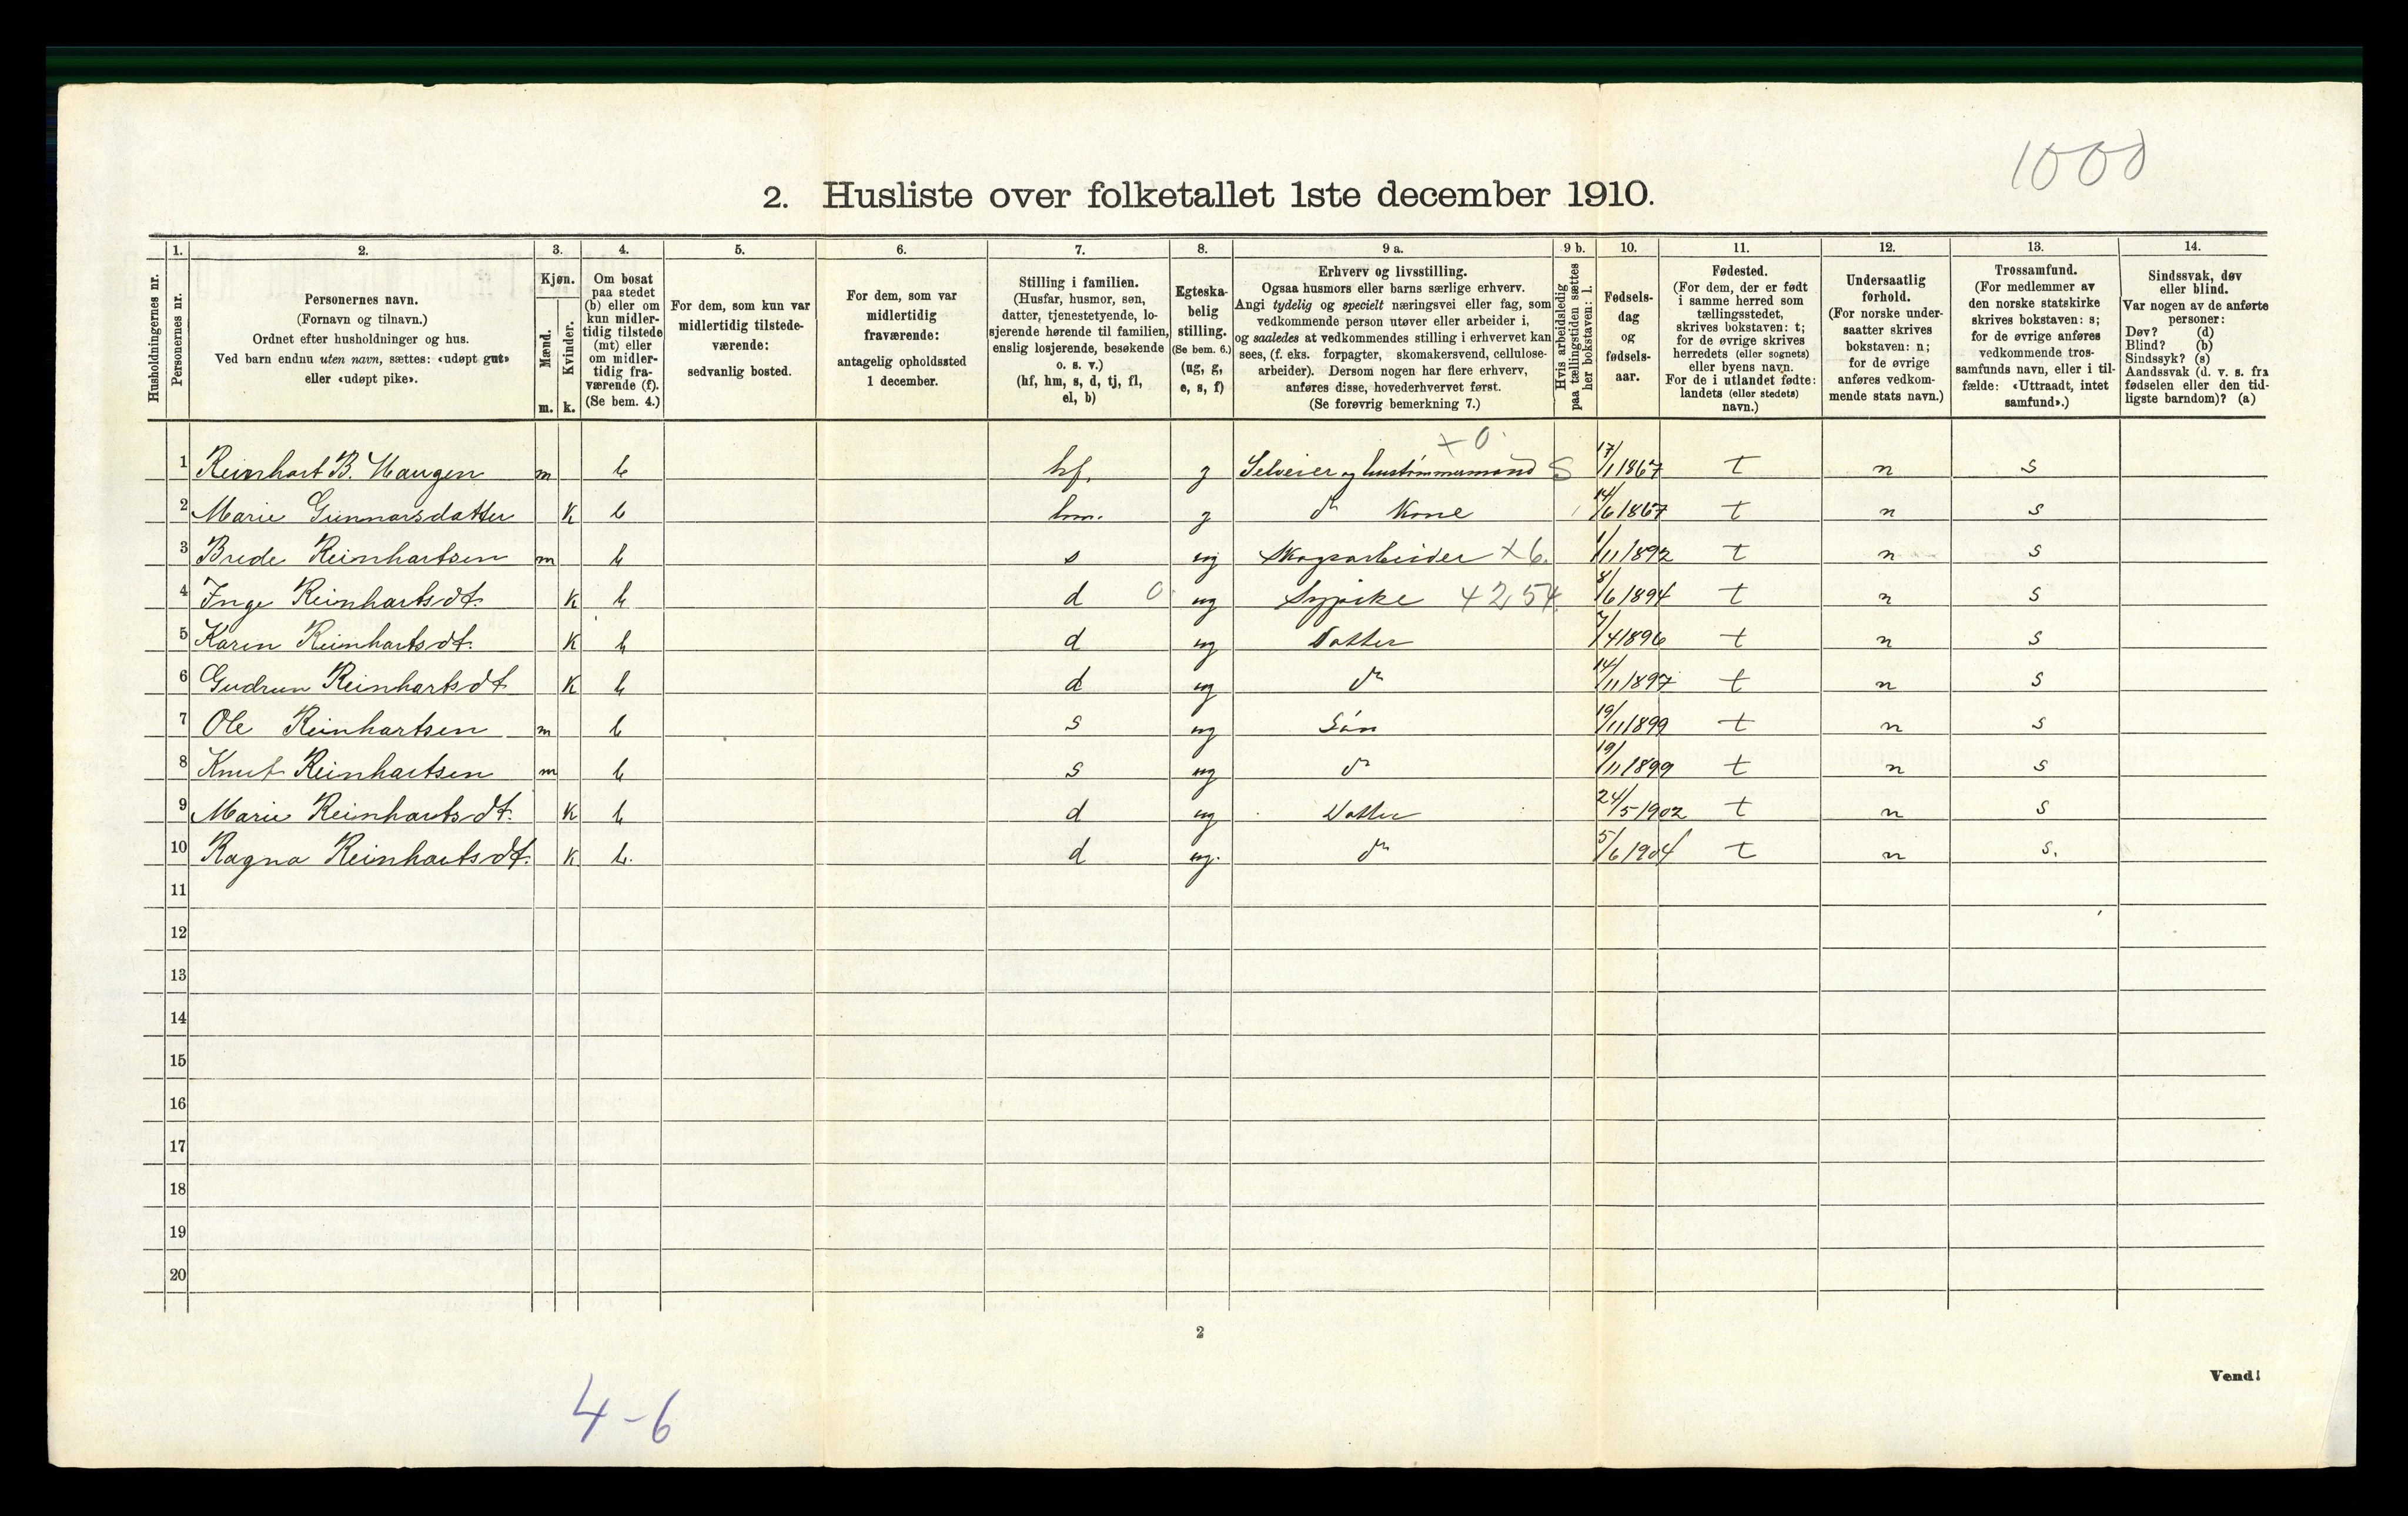 1000
2. Husliste over folketallet 1ste december 1910.
Husholdningernes nr.
1.
Personernes nr.
2.
Personernes navn.
(Fornavn og tilnavn.)
Ordnet efter husholdninger og hus.
Ved barn endnu uten navn, sættes: «udøpt gut»
eller «udøpt pike».
3.
Kjøn.
Mænd.
Kvinder.
m. k.
4.
Om bosat
paa stedet
(b) eller om
kun midler-
tidig tilstede
(mt) eller
om midler-
tidig fra-
værende (f).
(Se bem. 4.)
5.
For dem, som kun var
midlertidig tilstede-
værende:
sedvanlig bosted.
6.
For dem, som var
midlertidig
fraværende:
antagelig opholdssted
1 december.
7.
Stilling i familien.
(Husfar, husmor, søn,
datter, tjenestetyende, lo-
sjerende hørende til familien,
enslig losjerende, besøkende
o. s. v.)
(hf, hm, s, d, tj, fl,
el, b)
8.
Egteska-
belig
stilling.
(Se bem. 6.)
(ug, g,
e, s, f)
9 a.
Erhverv og livsstilling.
Ogsaa husmors eller barns særlige erhverv.
Angi tydelig og specielt næringsvei eller fag, som
vedkommende person utøver eller arbeider i,
og saaledes at vedkommendes stilling i erhvervet kan
sees, (f. eks. forpagter, skomakersvend, cellulose-
arbeider). Dersom nogen har flere erhverv,
anføres disse, hovederhvervet først.
(Se forøvrig bemerkning 7.)
9 b.
Hvis arbeidsledig
paa tællingstiden sættes
her bokstaven: l.
10.
Fødsels-
dag
og
fødsels-
aar.
11.
Fødested.
(For dem, der er født
i samme herred som
tællingsstedet,
skrives bokstaven: t;
for de øvrige skrives
herredets (eller sognets)
eller byens navn.
For de i utlandet fødte:
landets (eller stedets)
navn.)
12.
Undersaatlig
forhold.
(For norske under-
saatter skrives
bokstaven: n;
for de øvrige
anføres vedkom-
mende stats navn.)
13.
Trossamfund.
(For medlemmer av
den norske statskirke
skrives bokstaven: s;
for de øvrige anføres
vedkommende tros-
samfunds navn, eller i til-
fælde: «Uttraadt, intet
samfund».)
14.
Sindssvak, døv
eller blind.
Var nogen av de anførte
personer:
Døv? (d)
Blind? (b)
Sindssyk? (s)
Aandssvak (d. v. s. fra
fødselen eller den tid-
ligste barndom)? (a)
x 0
1 Reinhart B. Haugen m b hf. g Selveier og hustømmermand S 17/1 1867 t n s
2 Marie Gunnarsdatter K b hm. g do Kone 14/6 1867 t n s
3 Brede Reinhartsen m b s ug Skogsarbeider x 6. 1/11 1892 t n s
4 Inge Reinhartsdt. K b d 0 ug Sypike + 2,54. 8/6 1894 t n s
5 Karen Reinhartsdt. K b d ug Datter 7/4 1896 t n s
6 Gudrun Reinhartsdt K b d ug do 14/11 1897 t n s
7 Ole Reinhartsen m b s ug Søn 19/11 1899 t n s
8 Knut Reinhartsen m b s ug do 19/11 1899 t n s
9 Marie Reinhartsdt. K b d ug Datter 24/5 1902 t n s
10 Ragna Reinhartsdt. K b. d ug. do 5/6 1904 t n s.
11
12
13
14
15
16
17
18
19
20
2
Vend!
4-6